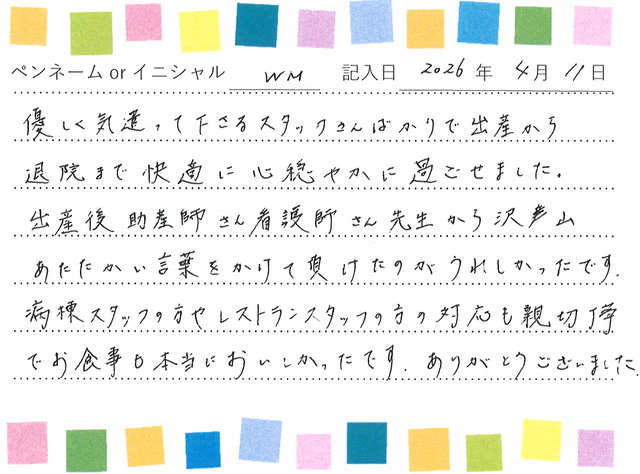 ペンネームorイニシャル WM 記入日 2026年 4月 11日
優しく気遣って下さるスタッフさんばかりで出産から
退院まで快適に心穏やかに過ごせました。
出産後助産師さん看護師さん先生から沢山
あたたかい言葉をかけて頂けたのがうれしかったです.
病棟スタッフの方やレストランスタッフの方の対応も親切
でお食事も本当においしかったです. ありがとうございました.